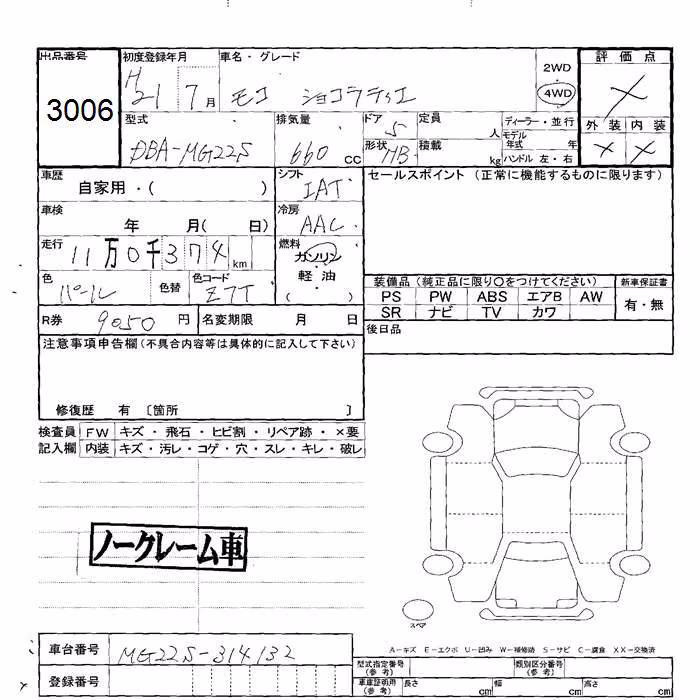 出品番号
3006
初度登録年月
H 21 7 月
車名・グレード
モコ ショコラティエ
2WD
4WD
評価点
×
外装 内装
× ×
型式
DBA-MG22S
排気量
660 cc
ドア
5
形状
HB
定員
人
積載
kg
ディーラー・並行
モデル年式 年
ハンドル 左・右
車歴
自家用・( )
シフト
IAT
セールスポイント (正常に機能するものに限ります)
車検
年 月( 日)
冷房
AAC
走行
11万0千374 km
燃料
ガソリン
・
軽油
( )
色
パール
色替
色コード
Z7T
装備品 (純正品に限り○をつけてください)
新車保証書
PS PW ABS エアB AW
SR ナビ TV カワ
有・無
R券 9050 円
名変期限 月 日
後日品
注意事項申告欄 (不具合内容等は具体的に記入して下さい)
修復歴 有 〔箇所 〕
検査員 FW キズ・飛石・ヒビ割・リペア跡・×要
記入欄 内装 キズ・汚レ・コゲ・穴・スレ・キレ・破レ
ノークレーム車
スペア
A－キズ E－エクボ U－凹み W－補修跡 S－サビ C－腐食 XX－交換済
車台番号
MG22S-314132
登録番号
型式指定番号
(参考)
類別区分番号
(参考)
車庫証明用
(参考)
長さ cm 幅 cm 高さ cm